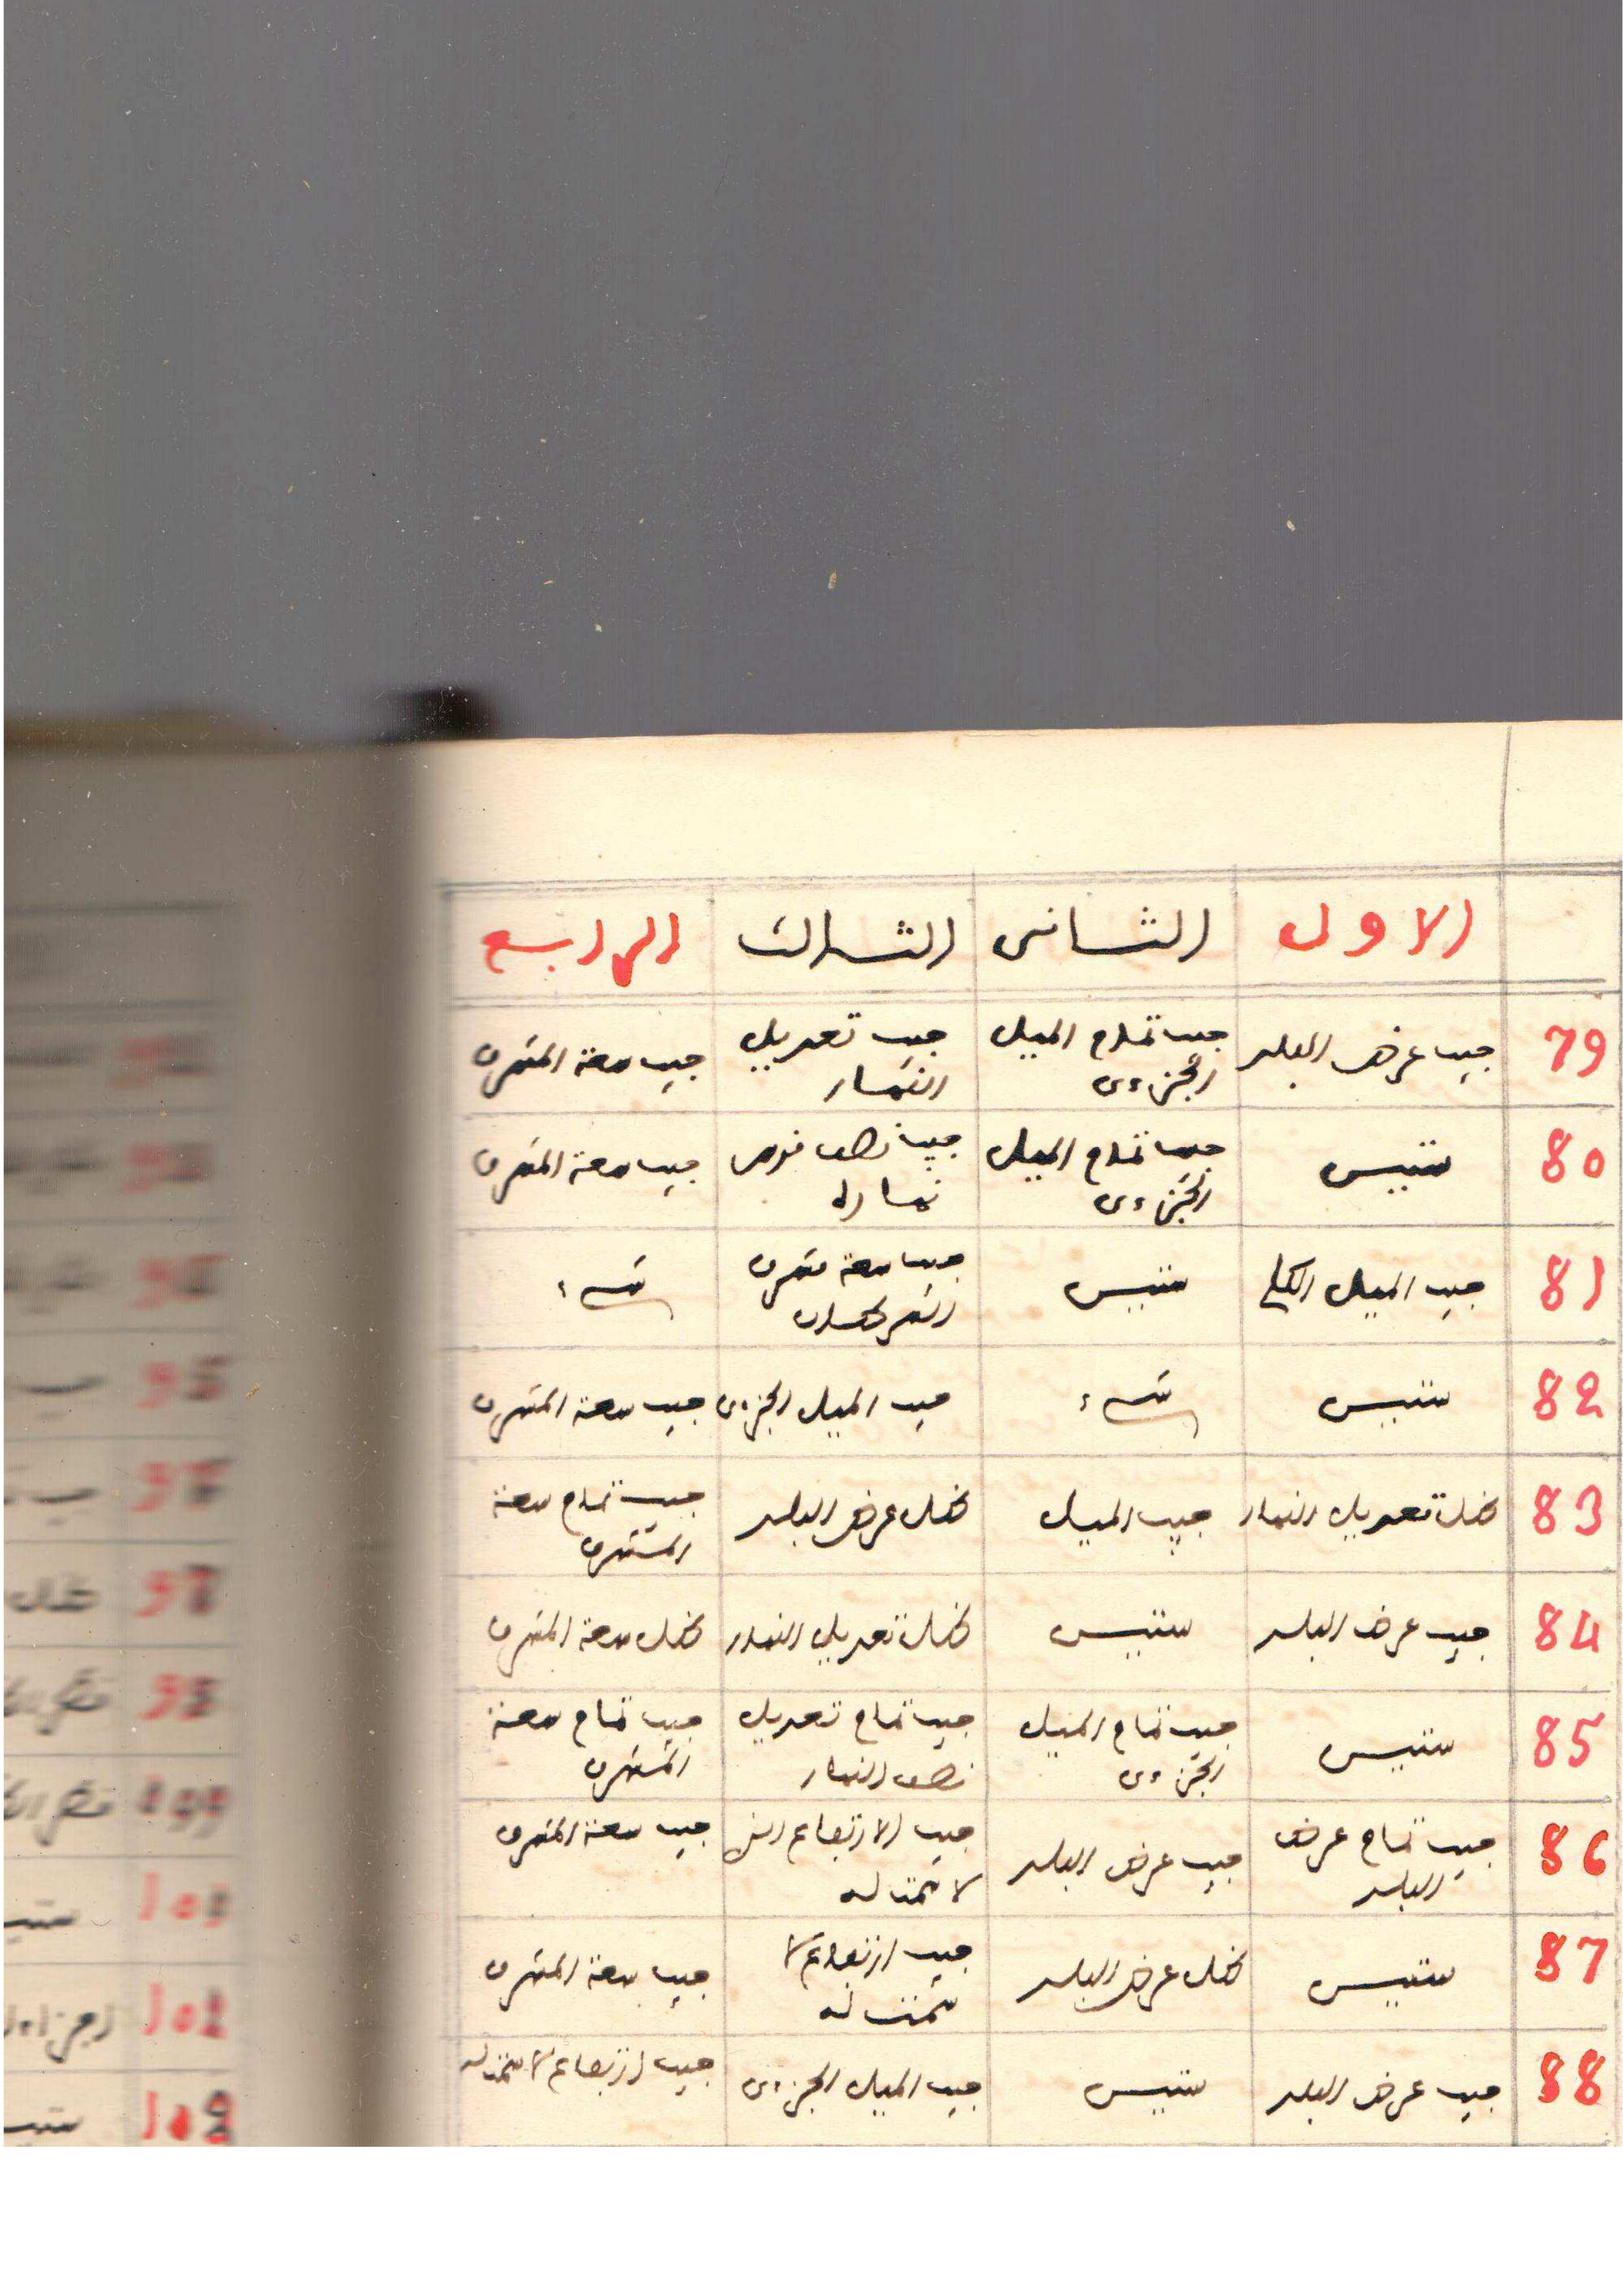 الاول الثانى الثالث الرابع
79 جيب عرض البلد جيب تمام الميل الجزءى جيب تعديل النهار جيب سعة المشرق
80 ستيس جيب تمام الميل الجزءى جيب نصف قوس نهاره جيب سعة المشرق
81 جيب الميل الكلي ستيس جيب سعة مشرق
82 ستيس جيب الميل الجزءى جيب سعة المشرق
83 ظل تعديل النهار جيب الميل ظل عرض البلد جيب تمام سعة المشرق
84 جيب عرض البلد ستيس ظل تعديل النهار ظل سعة المشرق
85 ستيس جيب تمام الميل الجزءى جيب تمام تعديل نصف النهار جيب تمام سعة المشرق
86 جيب تمام عرض البلد جيب عرض البلد جيب الارتفاع الذي لا سمت له جيب سعة المشرق
87 ستيس ظل عرض البلد جيب ارتفاع لا سمت له جيب سعة المشرق
88 جيب عرض البلد ستيس جيب الميل الجزءى جيب ارتفاع لا سمت له